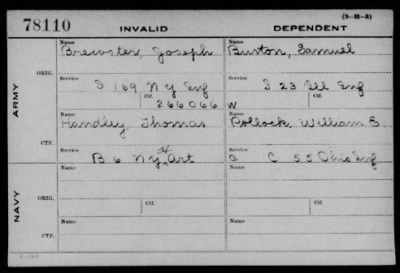 (3-H-3)
78110 INVALID DEPENDENT
Name Name
Brewster, Joseph Burton, Samuel
ORIG.
Service Service
S 169 N Y Inf I 23 Ill Inf
Ctf. Ctf.
266066 W
ARMY
Name Name
Handley, Thomas Pollock, William E
CTF.
Service Service
B 6 N.Y. H Art G C 55 Ohio Inf
Name Name
ORIG.
Ctf. Ctf.
NAVY
Name Name
CTF.